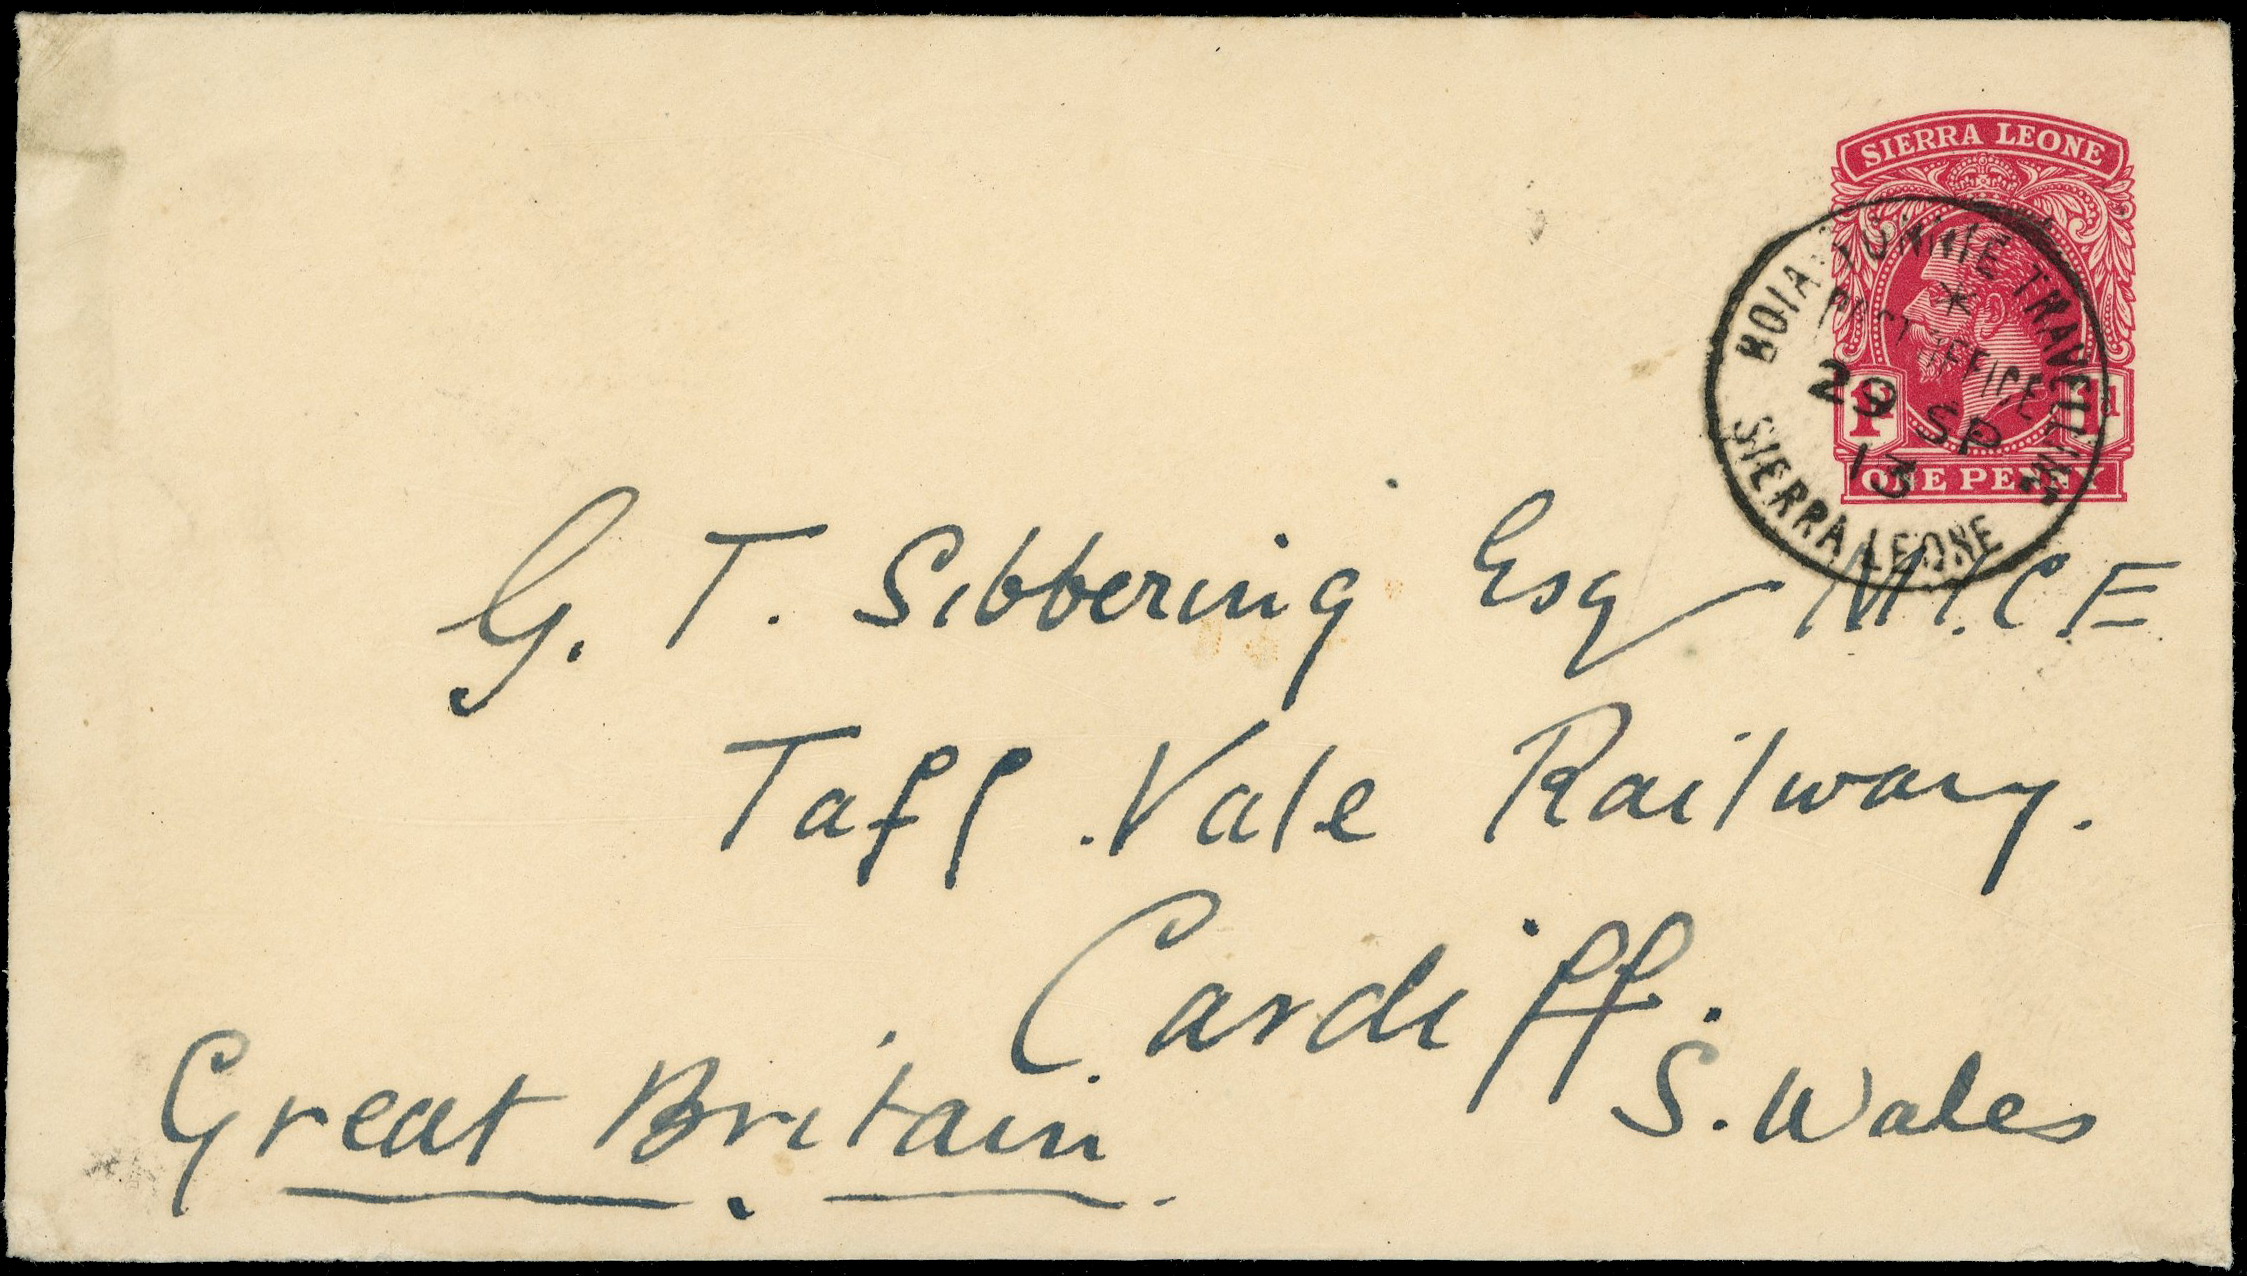 SIERRA LEONE
1d 1d
ONE PENNY
BOIA-YONNIE TRAVELLING
*
POST OFFICE
29 SP
13
SIERRA LEONE
G. T. Sibbering Esq M.I.C.E
Taff Vale Railway.
Cardiff.
S. Wales
Great Britain.